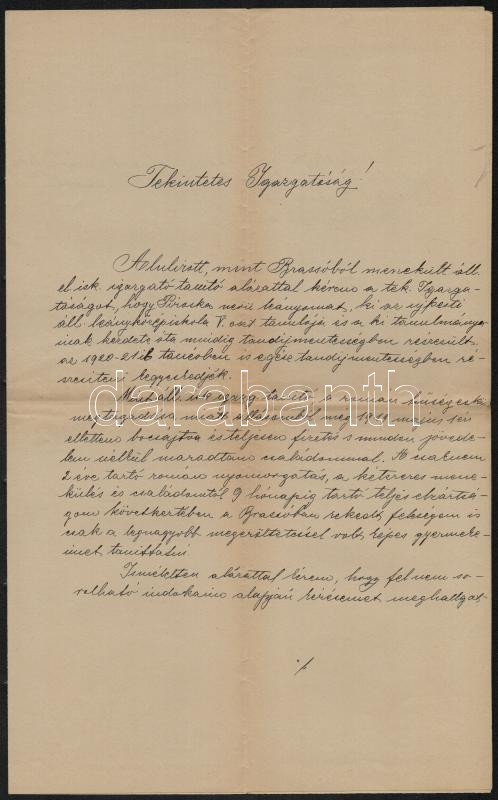 Tekintetes Igazgatóság!
Alulirott, mint Brassóból menekült áll.
el. isk. igazgató-tanító alázattal kérem a tek. Igazga-
tóságot, hogy Piroska nevü leányomat, ki az ujpesti
áll. leányközépiskola V. oszt. tanulója és a ki tanulmánya-
inak kezdete óta mindig tandijmentességben részesült,
az 1920-21 ik tanévben is egész tandijmentességben ré-
szesiteni kegyeskedjék.
Mint áll. isk. igazg. tanító a román hűségeskü
megtagadása miatt állásomból még 1919 május 1én
el lettem bocsájtva és teljesen fizetés s minden jövede-
lem nélkül maradtam családommal. A csaknem
2 évig tartó román nyomorgatás, a kétszeres mene-
külés és családomtól 9 hónapig tartó teljes elzártsá-
gom következtében a Brassóban rekedt feleségem is
csak a legnagyobb megerőltetéssel volt képes gyermeke-
imet tanittatni.
Ismételten alázattal kérem, hogy fel nem so-
rolható indokaim alapján kérésemet meghallgat-
./.
darabanth